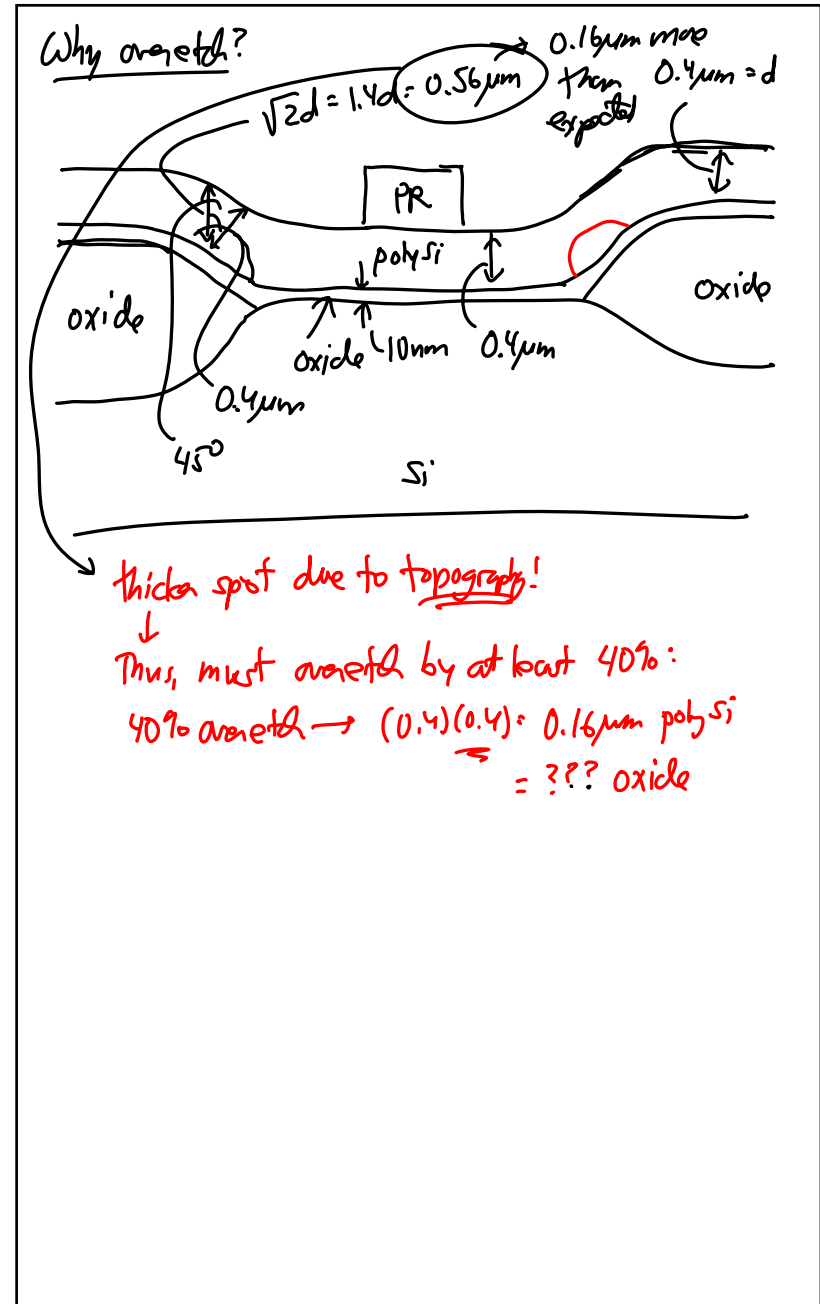 Why overetch?
√2d = 1.4d = 0.56μm
0.16μm more
than
expected
0.4μm = d
PR
poly Si
oxide
oxide
oxide
10nm
0.4μm
0.4μm
45°
Si
thicker spot due to topography!
Thus, must overetch by at least 40%:
40% overetch → (0.4)(0.4) = 0.16μm poly Si
= ??? oxide